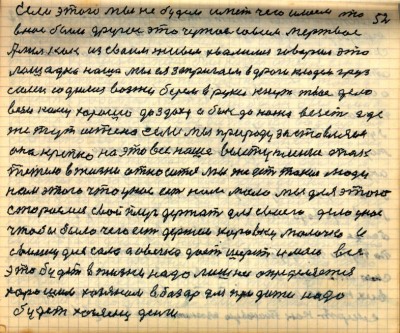 52
Если этого мы не будем имет чего имеем то
оное было другое это чужое совсем мертвое
Ямщик как из своим живьем хвалимся говорим это
лошадка наша мы ея запрягаем в дроги кладем груз
сами садимся вожжи берем в руки кнут твое дело
вези кому хорошо до здоху а бык до ножа везет где
же тут истена Если мы природу заставляем
она крепко на это все наше выступление а так
тяжело в жизни относится мы же ест такие люди
нам этого что у нас ест нам мало мы для этого
стораемся свой плуг держат для своего дело у нас
чтобы было чего ест держем коровку молочко и
свинину для сало а овечка дает шерст и мясо все
это будет в жизни надо лишнее определяется
хорошим хозяином в базар для продажи надо
будет хозяену деньги